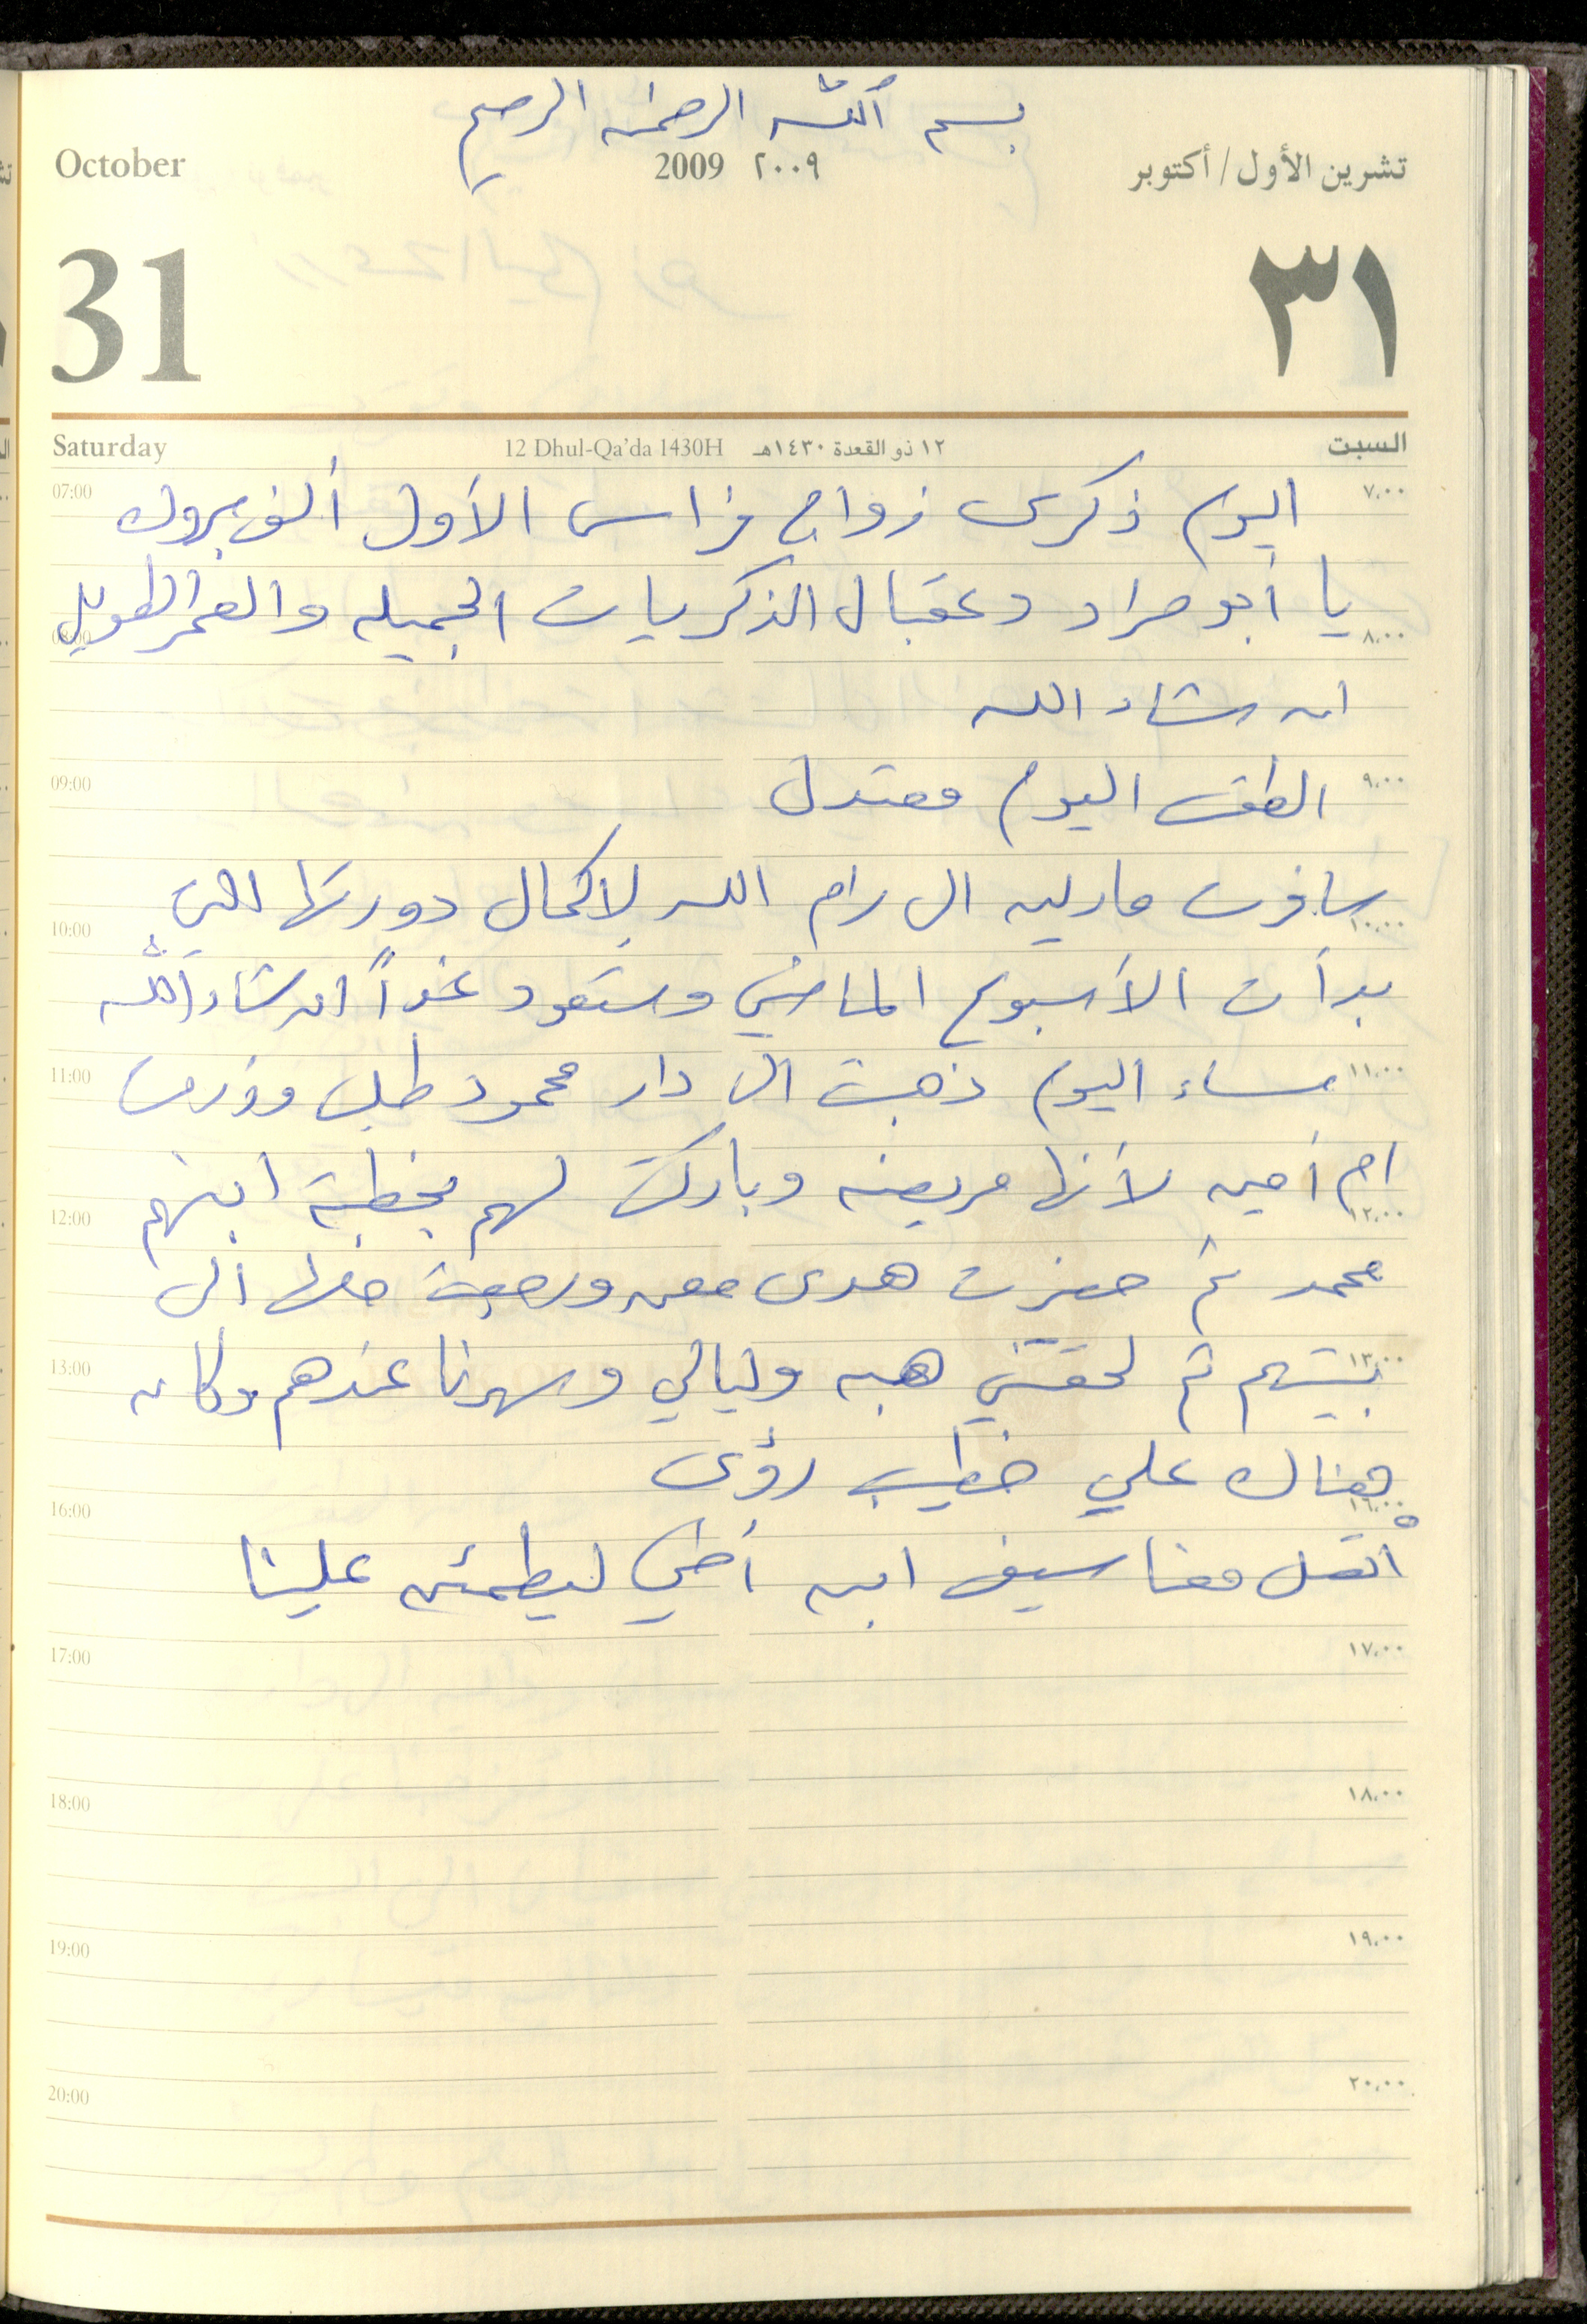 بسم الله الرحمن الرحيم
October 2009 ٢٠٠٩ تشرين الأول / أكتوبر
31 ٣١
Saturday 12 Dhul-Qa'da 1430H ١٢ ذو القعدة ١٤٣٠هـ السبت
07:00 اليوم ذكرى زواج فراس الأول ألف مبروك ٧,٠٠
يا أبو مراد وعقبال الذكريات الجميله والعمر الطويل
08:00 ٨,٠٠
ان شاء الله
09:00 الطقس اليوم معتدل ٩,٠٠
سافرت مادلين الى رام الله لاكمال دورتها التي
10:00 ١٠,٠٠
بدأت الأسبوع الماضي وستعود غداً ان شاء الله
11:00 مساء اليوم ذهبت الى دار محمود طبل وزرت ١١,٠٠
ام أمين لأنها مريضه وباركت لهم بخطبة ابنهم
12:00 ١٢,٠٠
محمد ثم حضرت هدى معي ورجعت معها الى
13:00 بيتهم ثم لحقتني هبه وليالي وسهرنا عندهم وكان ١٣,٠٠
هناك علي خطيب رؤى
16:00 ١٦,٠٠
اتصل معنا سيف ابن أخي ليطمئن علينا
17:00 ١٧,٠٠
18:00 ١٨,٠٠
19:00 ١٩,٠٠
20:00 ٢٠,٠٠